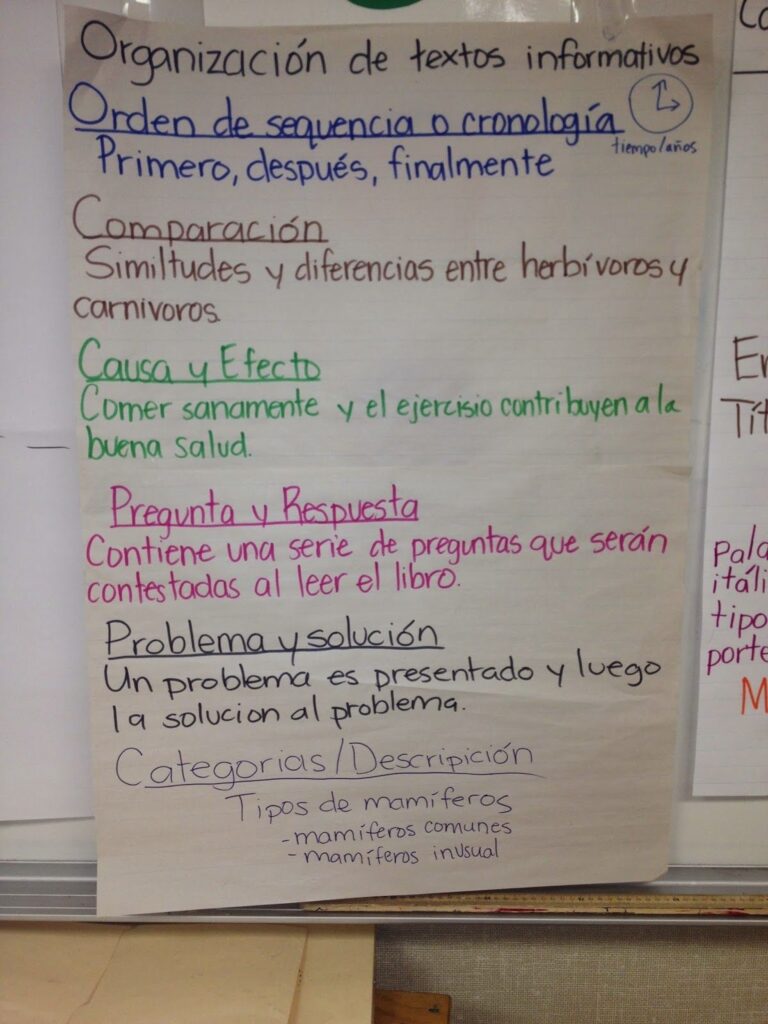 Organización de textos informativos
Orden de sequencia o cronología
tiempo/años
Primero, después, finalmente
Comparación
Similtudes y diferencias entre herbívoros y
carnivoros.
Causa y Efecto
Comer sanamente y el ejercisio contribuyen a la
buena salud.
Pregunta y Respuesta
Contiene una serie de preguntas que serán
contestadas al leer el libro.
Problema y solución
Un problema es presentado y luego
la solucion al problema.
Categorias/Descripición
Tipos de mamíferos
-mamíferos comunes
- mamíferos inusual